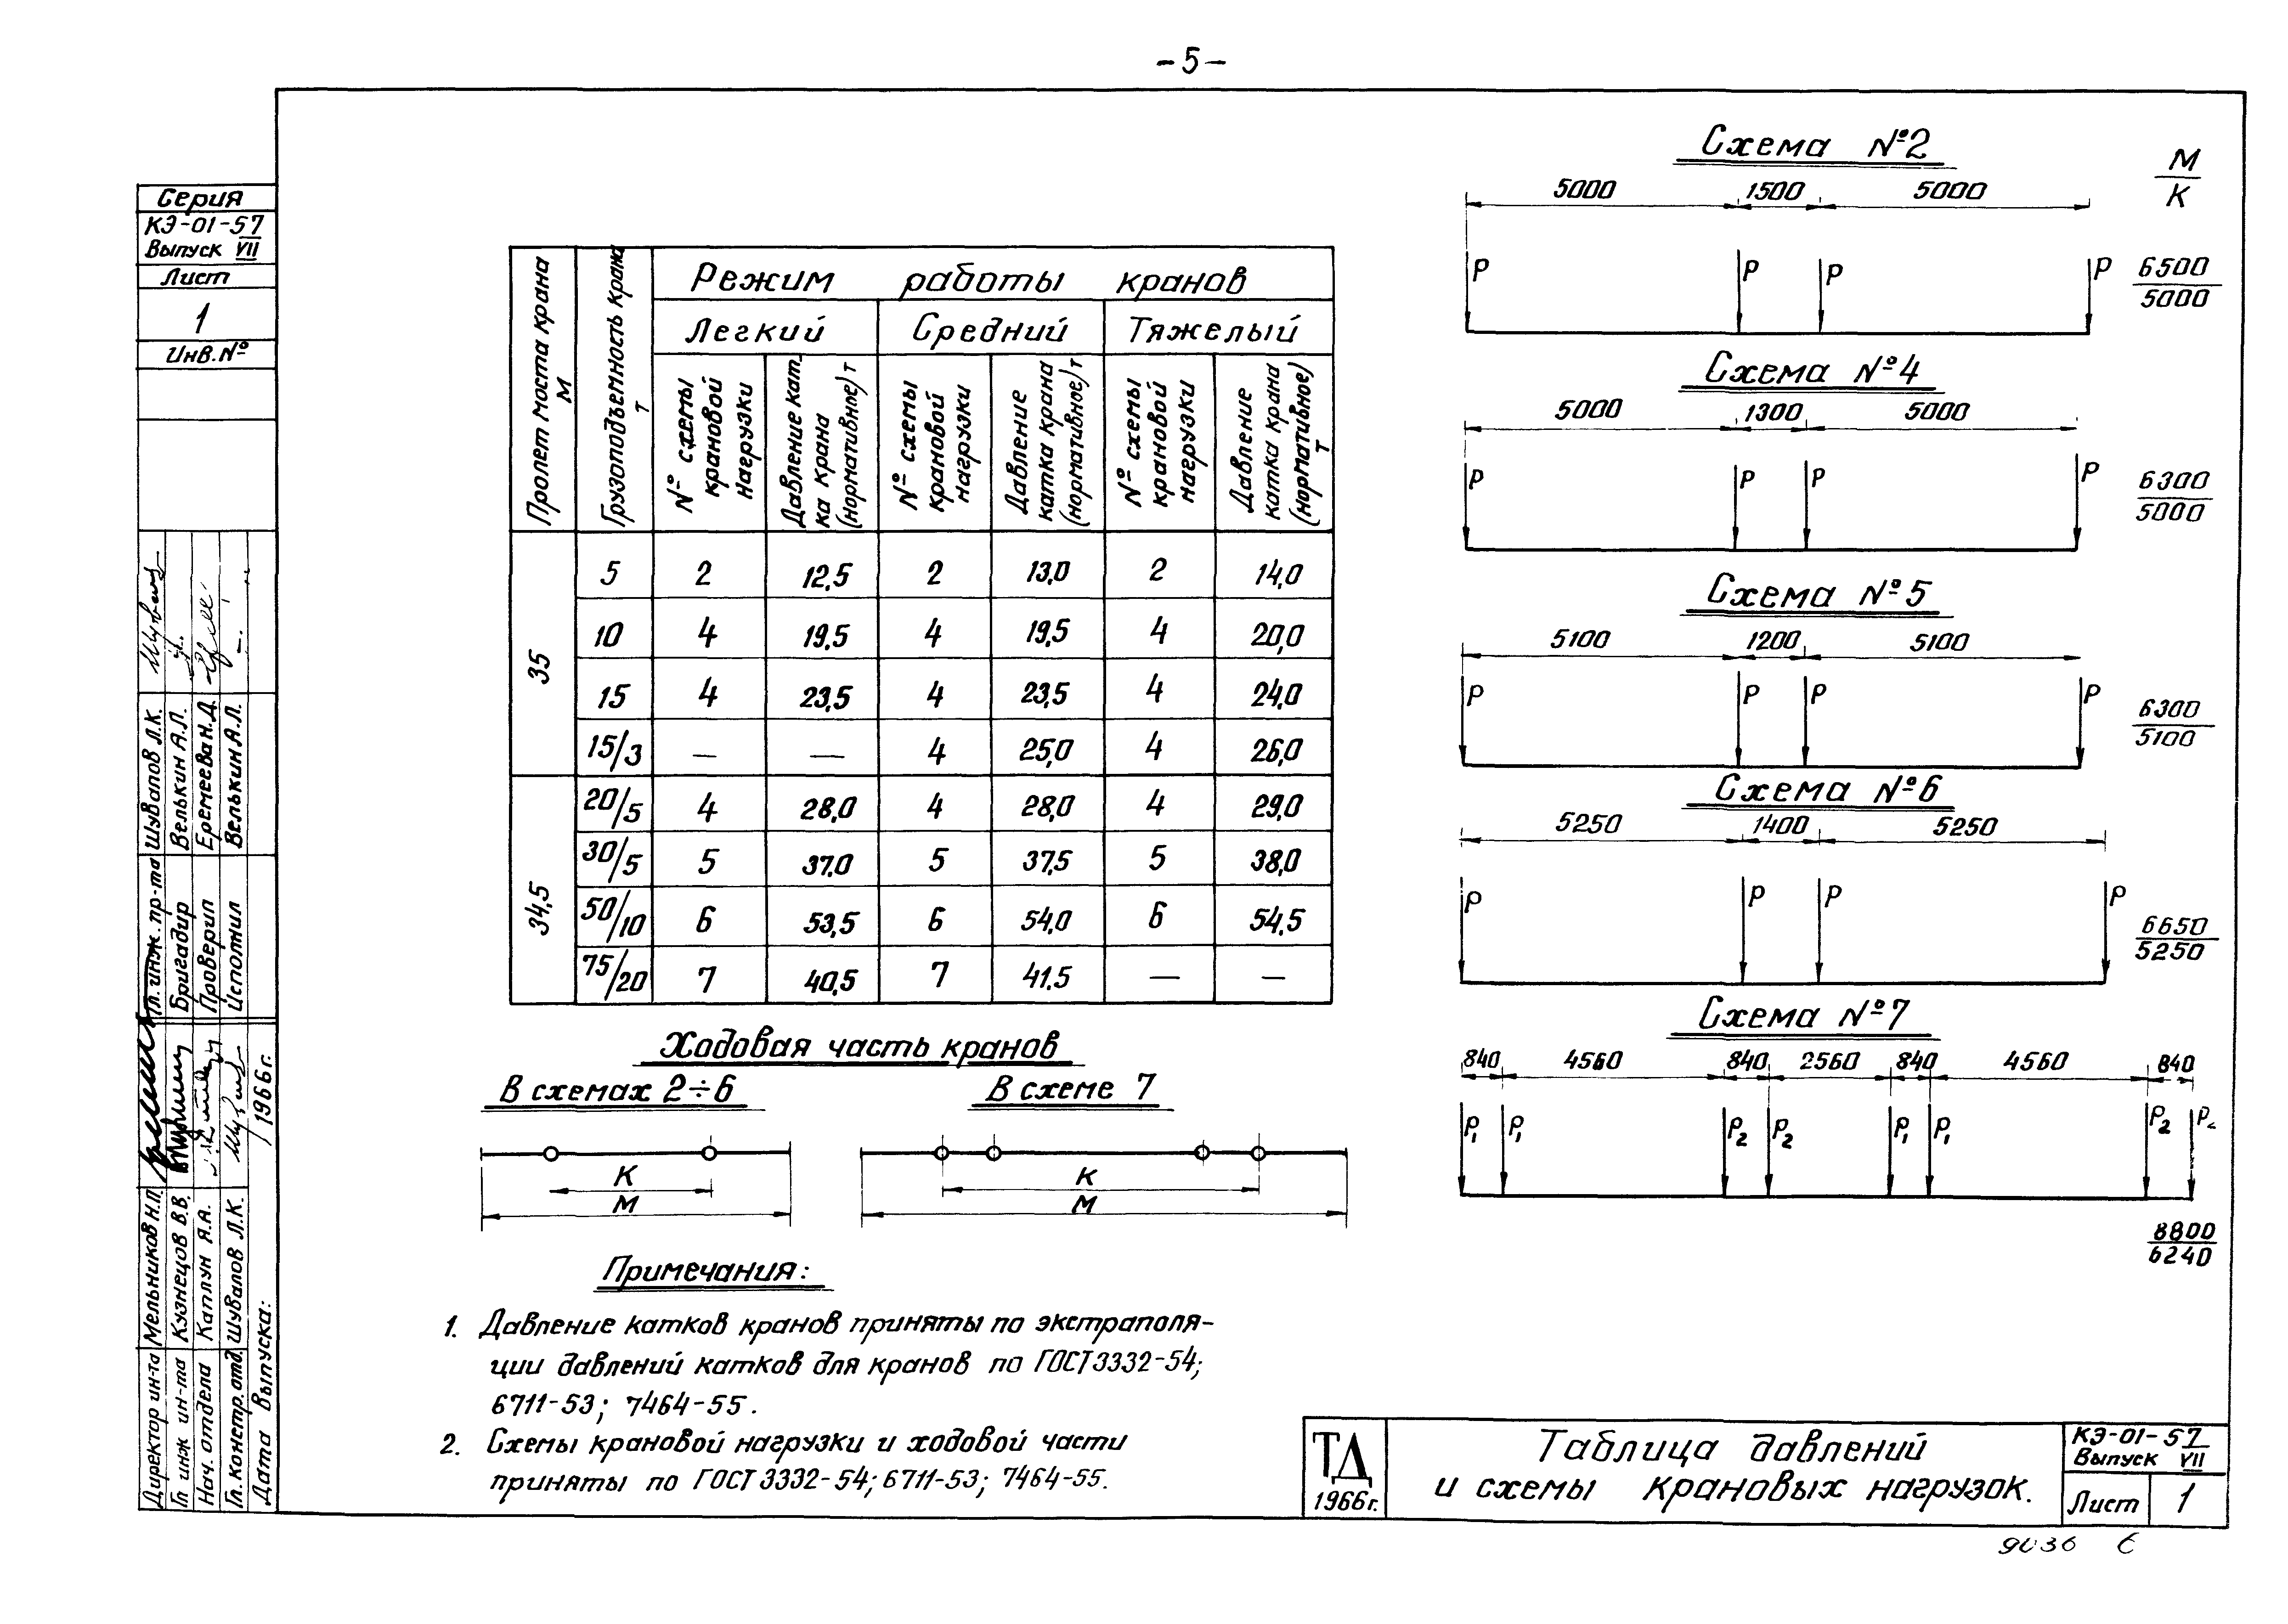 - 5 -
Серия
КЭ-01-57
Выпуск VII
Лист
1
Инв. №
Директор ин-та Мельников Н.П.
Гл инж ин-та Кузнецов В.В.
Нач. отдела Каплун Я.А.
Гл. констр. отд. Шувалов Л.К.
Дата выпуска: 1966г.
Гл. инж. пр-та Шувалов Л.К.
Бригадир Велькин А.Л.
Проверил Еремеева Н.Д.
Исполнил Велькин А.Л.
Пролет моста крана м
Грузоподъемность крана т
Режим работы кранов
Легкий Средний Тяжелый
№ схемы крановой нагрузки
Давление кат-
ка крана
(нормативное) т
№ схемы крановой нагрузки
Давление
катка крана
(нормативное) т
№ схемы крановой нагрузки
Давление
катка крана
(нормативное)
т
35
5 2 12,5 2 13,0 2 14,0
10 4 19,5 4 19,5 4 20,0
15 4 23,5 4 23,5 4 24,0
15/3 — — 4 25,0 4 26,0
34,5
20/5 4 28,0 4 28,0 4 29,0
30/5 5 37,0 5 37,5 5 38,0
50/10 6 53,5 6 54,0 6 54,5
75/20 7 40,5 7 41,5 — —
Ходовая часть кранов
В схемах 2÷6 В схеме 7
К К
М М
Примечания:
1. Давление катков кранов приняты по экстраполя-
ции давлений катков для кранов по ГОСТ 3332-54;
6711-53; 7464-55.
2. Схемы крановой нагрузки и ходовой части
приняты по ГОСТ 3332-54; 6711-53; 7464-55.
Схема №2
М
К
5000 1500 5000
Р Р Р Р
6500
5000
Схема №4
5000 1300 5000
Р Р Р Р
6300
5000
Схема №5
5100 1200 5100
Р Р Р Р
6300
5100
Схема №6
5250 1400 5250
Р Р Р Р
6650
5250
Схема №7
840 4560 840 2560 840 4560 840
Р1 Р1 Р2 Р2 Р1 Р1 Р2 Р2
8800
6240
ТД
1966г.
Таблица давлений
и схемы крановых нагрузок.
КЭ-01-57
Выпуск VII
Лист 1
9036 6